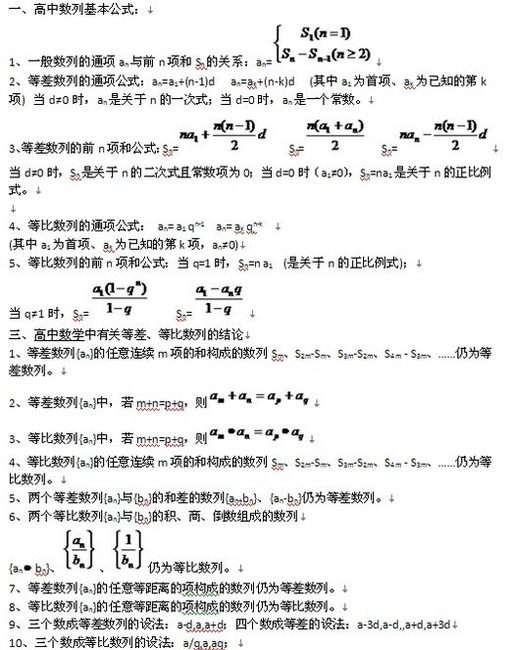 一、高中数列基本公式：↓
1、一般数列的通项 aₙ与前 n 项和 Sₙ的关系：aₙ= { S₁(n=1) Sₙ-Sₙ₋₁(n≥2) ↓
2、等差数列的通项公式：aₙ=a₁+(n-1)d aₙ=aₖ+(n-k)d (其中 a₁为首项、aₖ为已知的第 k
项) 当 d≠0 时，aₙ是关于 n 的一次式；当 d=0 时，aₙ是一个常数。↓
3、等差数列的前 n 项和公式：Sₙ= na₁+n(n-1)/2 d Sₙ= n(a₁+aₙ)/2 Sₙ= naₙ-n(n-1)/2 d ↓
当 d≠0 时，Sₙ是关于 n 的二次式且常数项为 0；当 d=0 时（a₁≠0），Sₙ=na₁是关于 n 的正比例
式。↓
↓
4、等比数列的通项公式： aₙ= a₁ qⁿ⁻¹ aₙ= aₖ qⁿ⁻ᵏ ↓
(其中 a₁为首项、aₖ为已知的第 k 项，aₙ≠0)↓
5、等比数列的前 n 项和公式：当 q=1 时，Sₙ=n a₁ (是关于 n 的正比例式)；↓
当 q≠1 时，Sₙ= a₁(1-qⁿ)/1-q Sₙ= a₁-aₙq/1-q ↓
三、高中数学中有关等差、等比数列的结论↓
1、等差数列{aₙ}的任意连续 m 项的和构成的数列 Sm、S2m-Sm、S3m-S2m、S4m - S3m、……仍为等
差数列。↓
2、等差数列{aₙ}中，若 m+n=p+q，则 aₘ+aₙ=aₚ+a_q ↓
3、等比数列{aₙ}中，若 m+n=p+q，则 aₘ•aₙ=aₚ•a_q ↓
4、等比数列{aₙ}的任意连续 m 项的和构成的数列 Sm、S2m-Sm、S3m-S2m、S4m - S3m、……仍为等
比数列。↓
5、两个等差数列{aₙ}与{bₙ}的和差的数列{aₙ+bₙ}、{aₙ-bₙ}仍为等差数列。↓
6、两个等比数列{aₙ}与{bₙ}的积、商、倒数组成的数列
{aₙ• bₙ}、{aₙ/bₙ}、{1/bₙ} 仍为等比数列。↓
7、等差数列{aₙ}的任意等距离的项构成的数列仍为等差数列。↓
8、等比数列{aₙ}的任意等距离的项构成的数列仍为等比数列。↓
9、三个数成等差数列的设法：a-d,a,a+d；四个数成等差的设法：a-3d,a-d,,a+d,a+3d↓
10、三个数成等比数列的设法：a/q,a,aq；↓